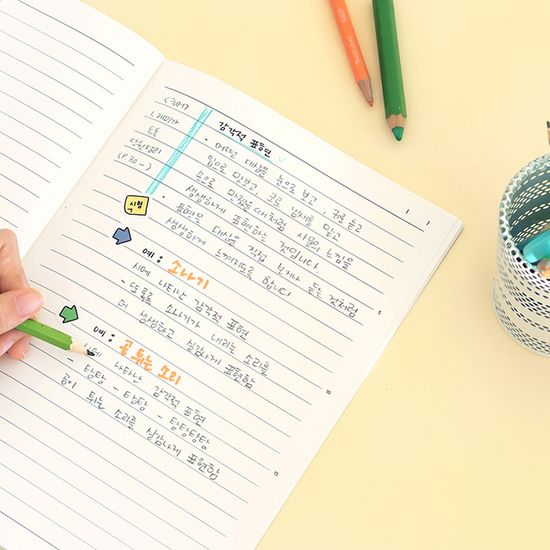 <국어>
1. 재미가
톡톡
단원정리
(P.30~)
감각적 표현
· 어떤 대상을 눈으로 보고, 귀로 듣고
입으로 맛보고, 코로 냄새를 맡고
손으로 만졌을때처럼 사물의 느낌을
생생하게 표현하는 것입니다
· 표현은 대상을 직접 보거나 듣는 것처럼
생생하게 느껴지도록 합니다
시험
예: 소나기
시에 나타난 감각적 표현
- 또록또록 소나기가 내리는 소리를
더 생생하고 실감나게 표현함
예: 공 튀는 소리
시에 나타난 감각적 표현
- 탕탕 - 탕탕 - 탕탕탕탕
공이 튀는 소리를 실감나게 표현함
5
10
15